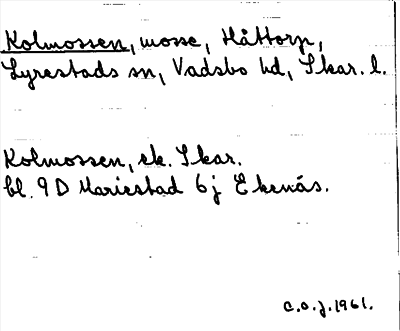 Kolmossen, mosse, Håttorp,
Lyrestads sn, Vadsbo hd, Skar. l.
Kolmossen, ek. Skar.
bl. 9D Mariestad 6j Ekenäs.
C.O.J. 1961.